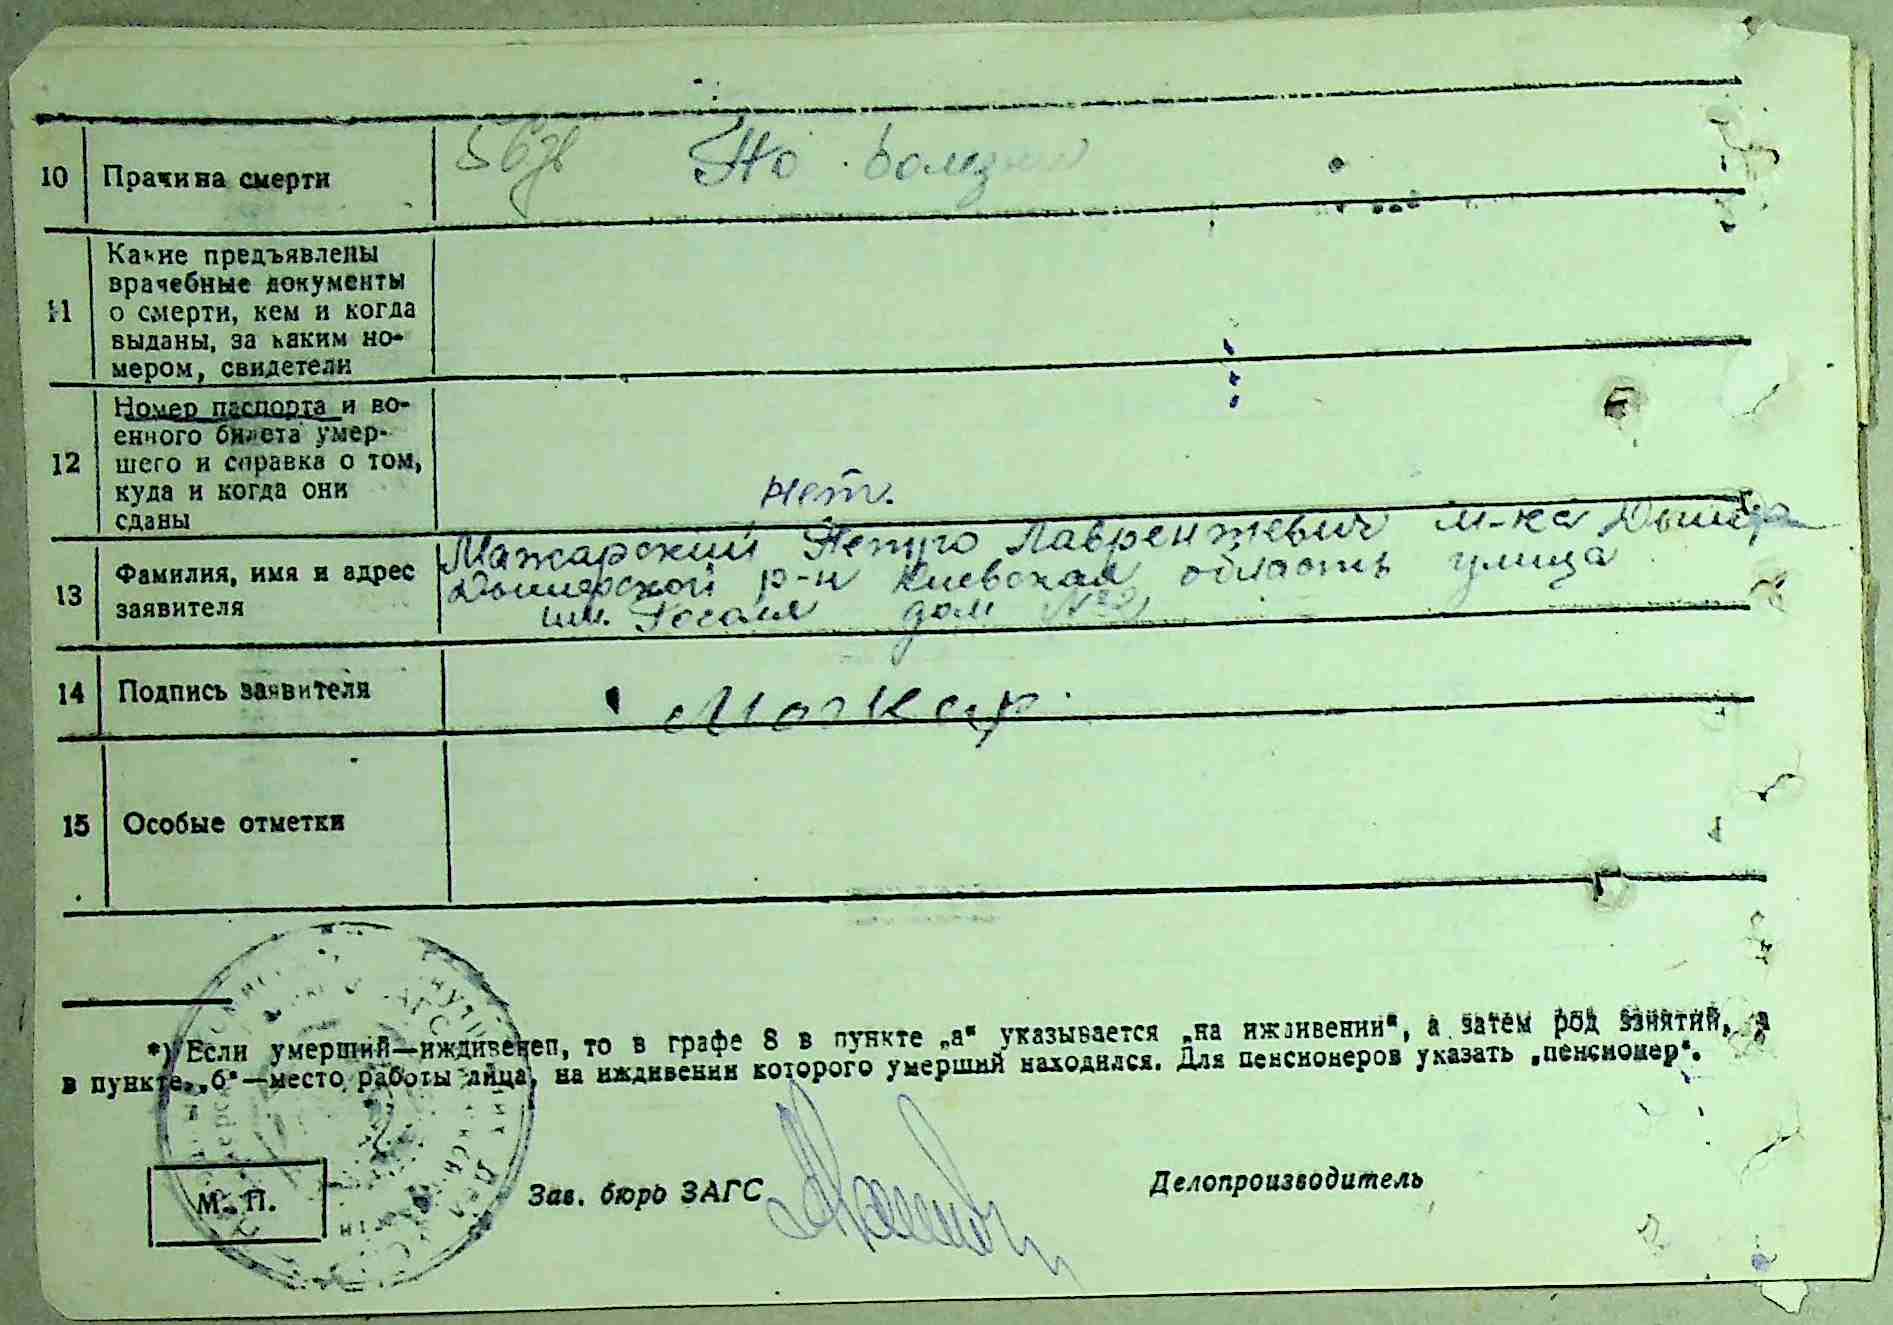 10 Прачина смерти
По болезни
11 Какие предъявлены
врачебные документы
о смерти, кем и когда
выданы, за каким но-
мером, свидетели
12 Номер паспорта и во-
енного билета умер-
шего и справка о том,
куда и когда они
сданы
нет.
13 Фамилия, имя и адрес
заявителя
Мажарский Петро Лаврентжевич м-ка Дымер
Дымерской р-н Киевская область улица
им. Гоголя дом
14 Подпись заявителя
Мажар.
15 Особые отметки
*) Если умерший—иждивенец, то в графе 8 в пункте „а“ указывается „на иждивении“, а затем род занятий, а
в пункте „б“—место работы лица, на иждивении которого умерший находился. Для пенсионеров указать „пенсионер“.
М. П.
Зав. бюро ЗАГС
Делопроизводитель